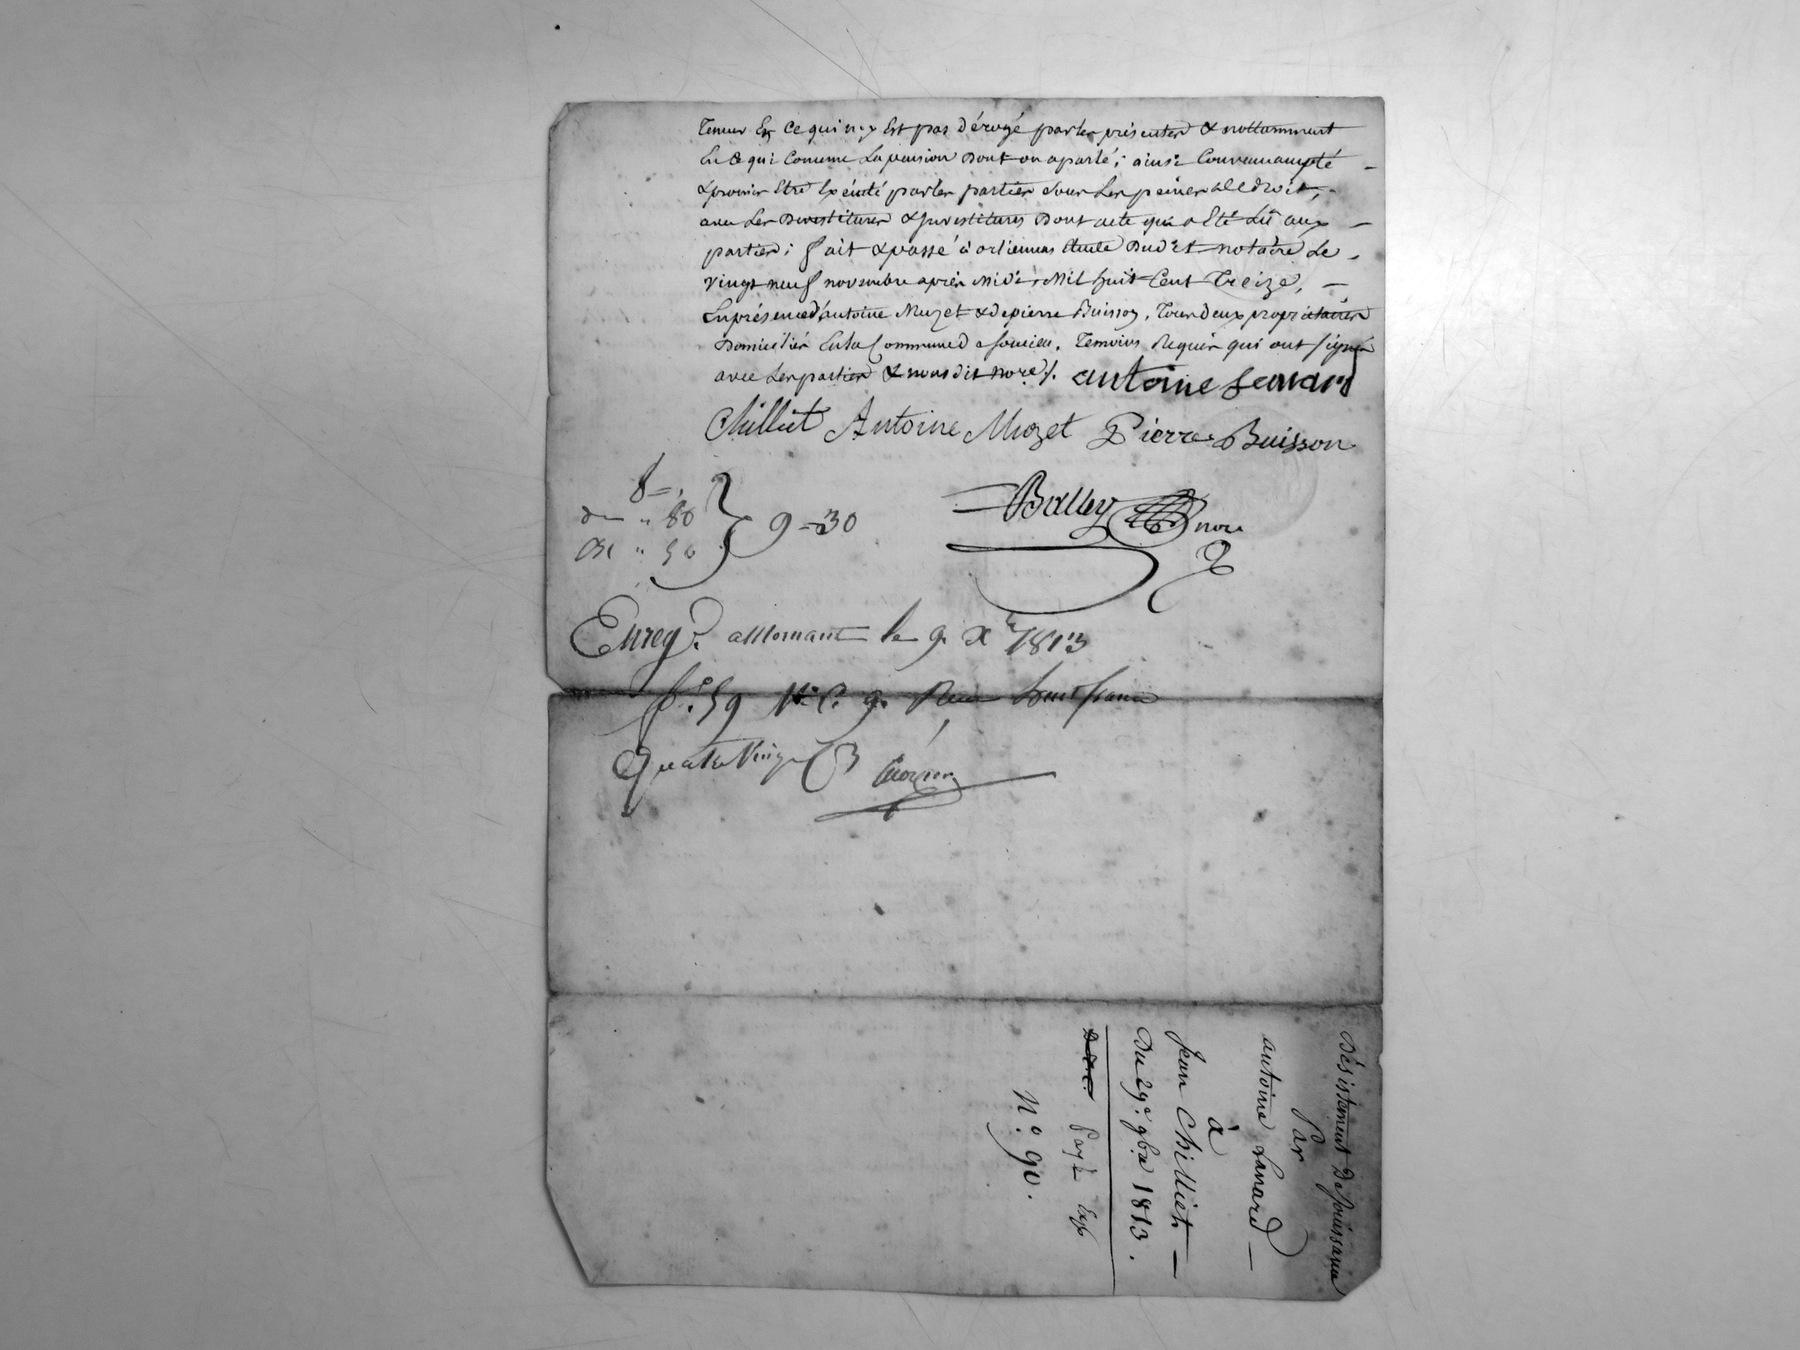 Teneur En ce qui n'y Est pas dérogé par les présentes & nottamment
En ce qui concerne La pension dont on a parlé; ainsi Convenu accepté
& promis Etre Exécuté par les parties sous les peines de droit,
avec Les devestitures & investitures dont acte qui a Eté Lû aux
parties; fait & passé à orliennas Etude dudit notaire Le
vingt neuf novembre après Midi, Mil huit Cent Treize,
En présence d'antoine Muzet & de pierre Buisson, Tous deux propriétaires
Domiciliés En la Commune de soucieu, Temoins Requis qui ont signés
avec Les parties & nous dit nore ./. antoine Lenard
Chilliet Antoine Mozet Pierre Buisson
8 = ,
du " 80
" 50
9 = 30
Balley nore
Enreg. à Mornant le 9. Xbre 1813
f.o 59 Vo C. 9. Reçu huit francs
Quatre Vingt
Désistement De jouissance
Par
antoine Lenard
à
Jean Chilliet
Du 29e. 9bre 1813.
Payé
No. 90.